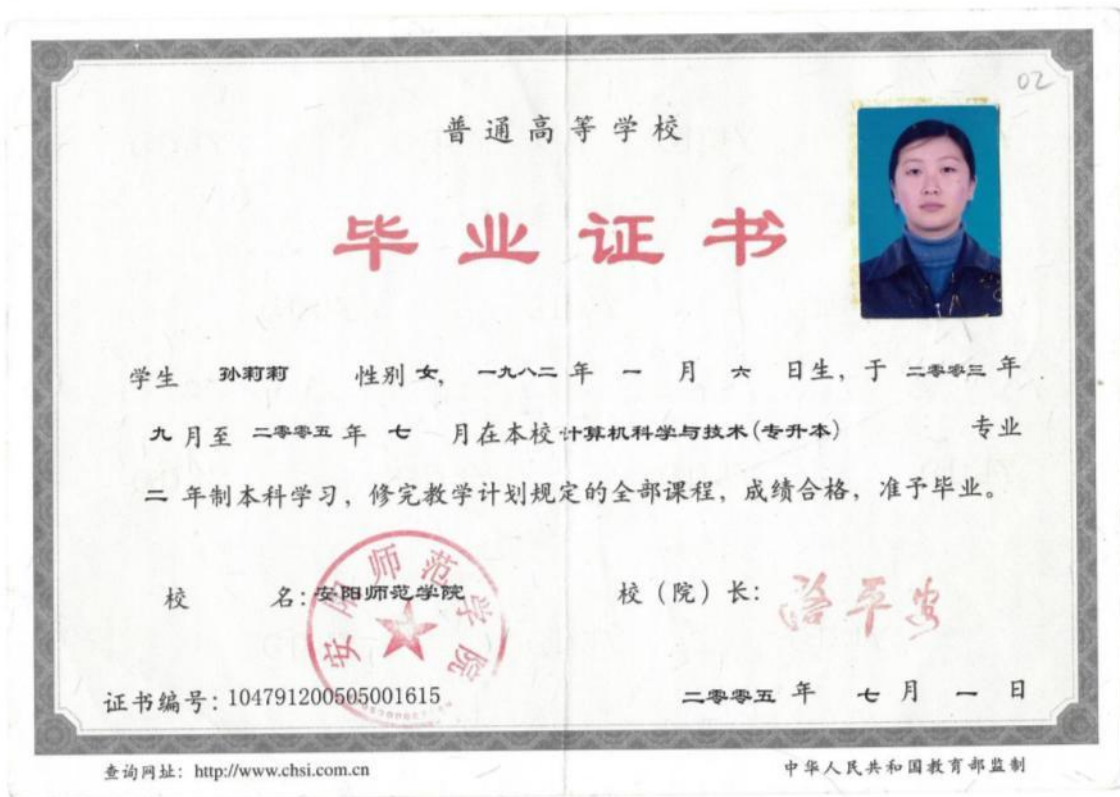 02
普通高等学校
毕业证书
学生 孙莉莉 性别 女, 一九八二 年 一 月 六 日生, 于 二零零三 年
九 月至 二零零五 年 七 月在本校 计算机科学与技术(专升本) 专业
二 年制本科学习, 修完教学计划规定的全部课程, 成绩合格, 准予毕业。
校 名: 安阳师范学院
安阳师范学院
校（院）长:
证书编号: 104791200505001615
二零零五 年 七 月 一 日
查询网址: http://www.chsi.com.cn
中华人民共和国教育部监制